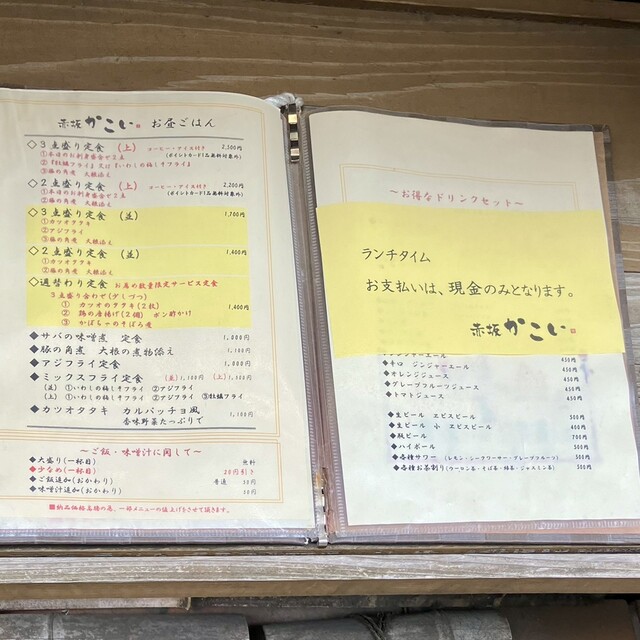 赤坂 かこい お昼ごはん
◇3点盛り定食 (上) コーヒー・アイス付き 2,500円
(ポイントカード1品無料対象外)
①本日のお刺身盛合せ3点
②『牡蠣フライ』又は『いわしの梅しそフライ』
③豚の角煮 大根添え
◇2点盛り定食 (上) コーヒー・アイス付き 2,200円
(ポイントカード1品無料対象外)
①本日のお刺身盛合せ3点
②豚の角煮 大根添え
◇3点盛り定食 (並) 1,700円
①カツオタタキ
②アジフライ
③豚の角煮 大根添え
◇2点盛り定食 (並) 1,400円
①カツオタタキ
②豚の角煮 大根添え
◇週替わり定食 お昼の数量限定サービス定食
3点盛り合わせ(少しづつ) 1,400円
① カツオのタタキ(2枚)
② 鶏の唐揚げ(2個) ポン酢かけ
③ かぼちゃのそぼろ煮
◆サバの味噌煮 定食 1,000円
◆豚の角煮 大根の煮物添え 1,100円
◆アジフライ定食 1,000円
◆ミックスフライ定食 (並)1,100円 (上)1,300円
(並) ①いわしの梅しそフライ ②アジフライ
(上) ①いわしの梅しそフライ ②アジフライ ③牡蠣フライ
◆カツオタタキ カルパッチョ風 1,100円
香味野菜たっぷりで
～ご飯・味噌汁に関して～
◆大盛り(一杯目) 無料
◆少なめ(一杯目) 20円引き
◆ご飯追加(おかわり) 普通 50円
◆味噌汁追加(おかわり) 50円
■納品価格高騰の為、一部メニューの値上げをさせて頂きます。
～お得なドリンクセット～
ランチタイム
お支払いは、現金のみとなります。
赤坂 かこい
◆ジンジャーエール 450円
◆辛口 ジンジャーエール 450円
◆オレンジジュース 450円
◆グレープフルーツジュース 450円
◆トマトジュース 450円
◆生ビール エビスビール 500円
◆生ビール 小 エビスビール 400円
◆瓶ビール 700円
◆ハイボール 500円
◆各種サワー (レモン・シークワーサー・グレープフルーツ) 500円
◆各種お茶割り(ウーロン茶・そば茶・緑茶・ジャスミン茶) 500円